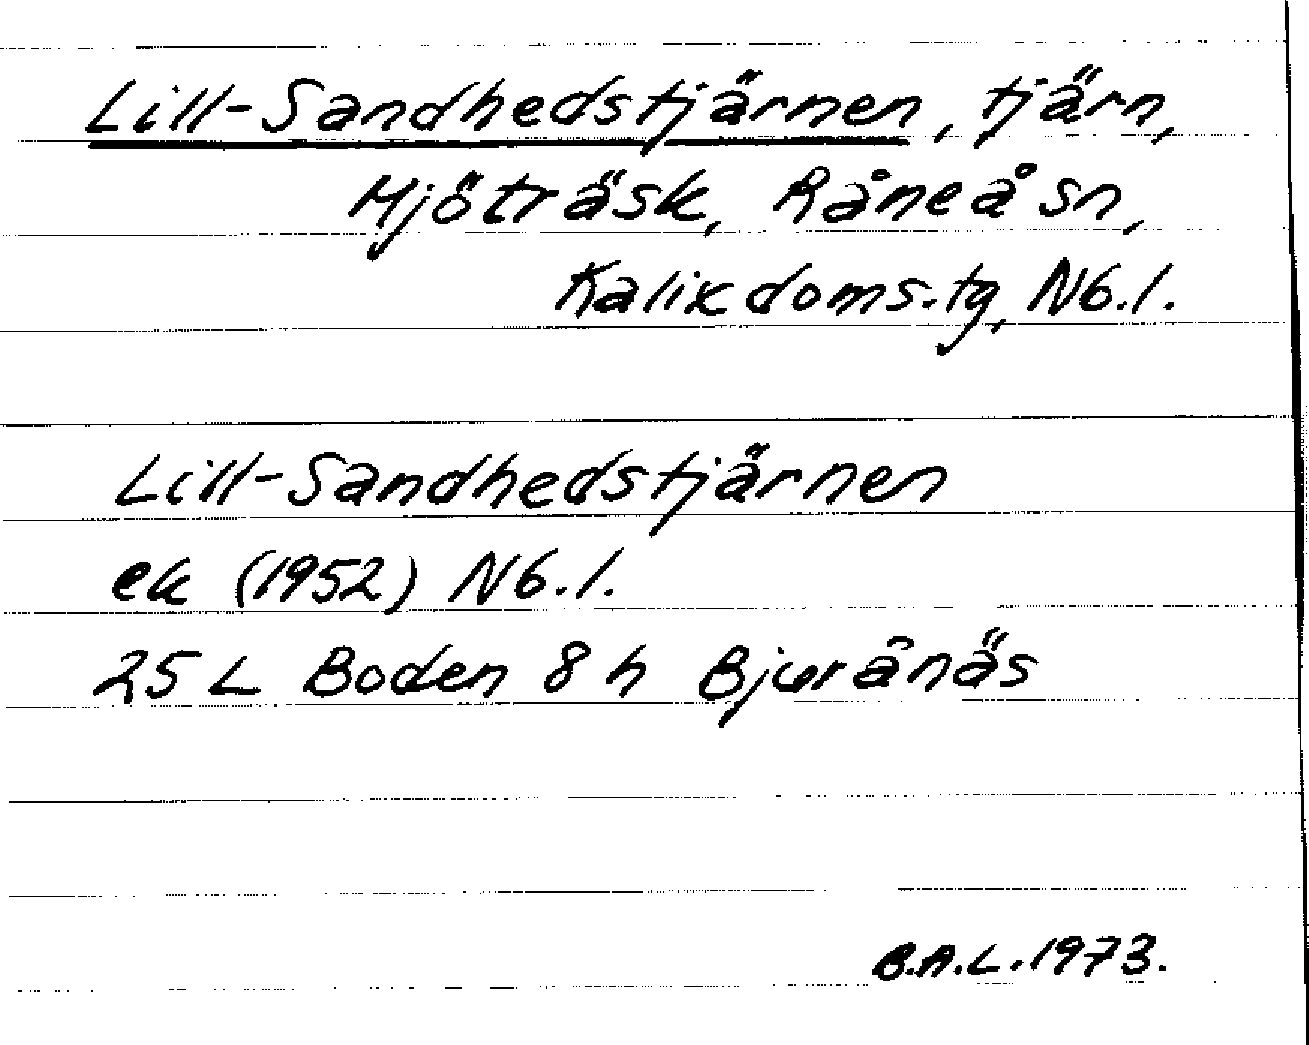 Lill-Sandhedstjärnen, tjärn,
Mjöträsk, Råneå sn,
Kalix doms.tg, Nb.l.
Lill-Sandhedstjärnen
ek (1952) Nb.l.
25 L Boden 8 h Bjuränäs
B.A.L. 1973.